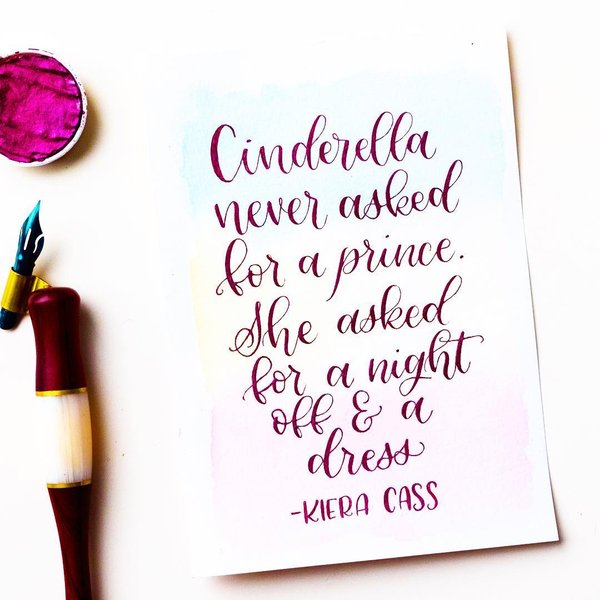 Cinderella
never asked
for a prince.
She asked
for a night
off & a
dress
-KIERA CASS